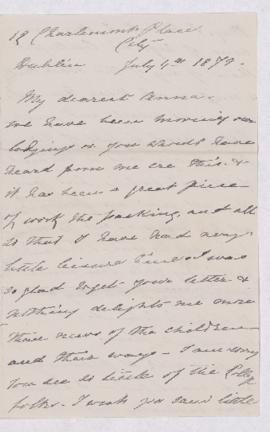 12 Charlemont Place
City
Dublin July 4th 1879.
My dearest Anna.
We have been moving our
lodgings or you would have
heard from me ere this. &
it has been a great piece
of work the packing, and all
so that I have had very
little leisure time I was
so glad to get your letter &
nothing delights me more
than news of the children
and their ways - I am sorry
you see so little of the
folks. I wish you saw little